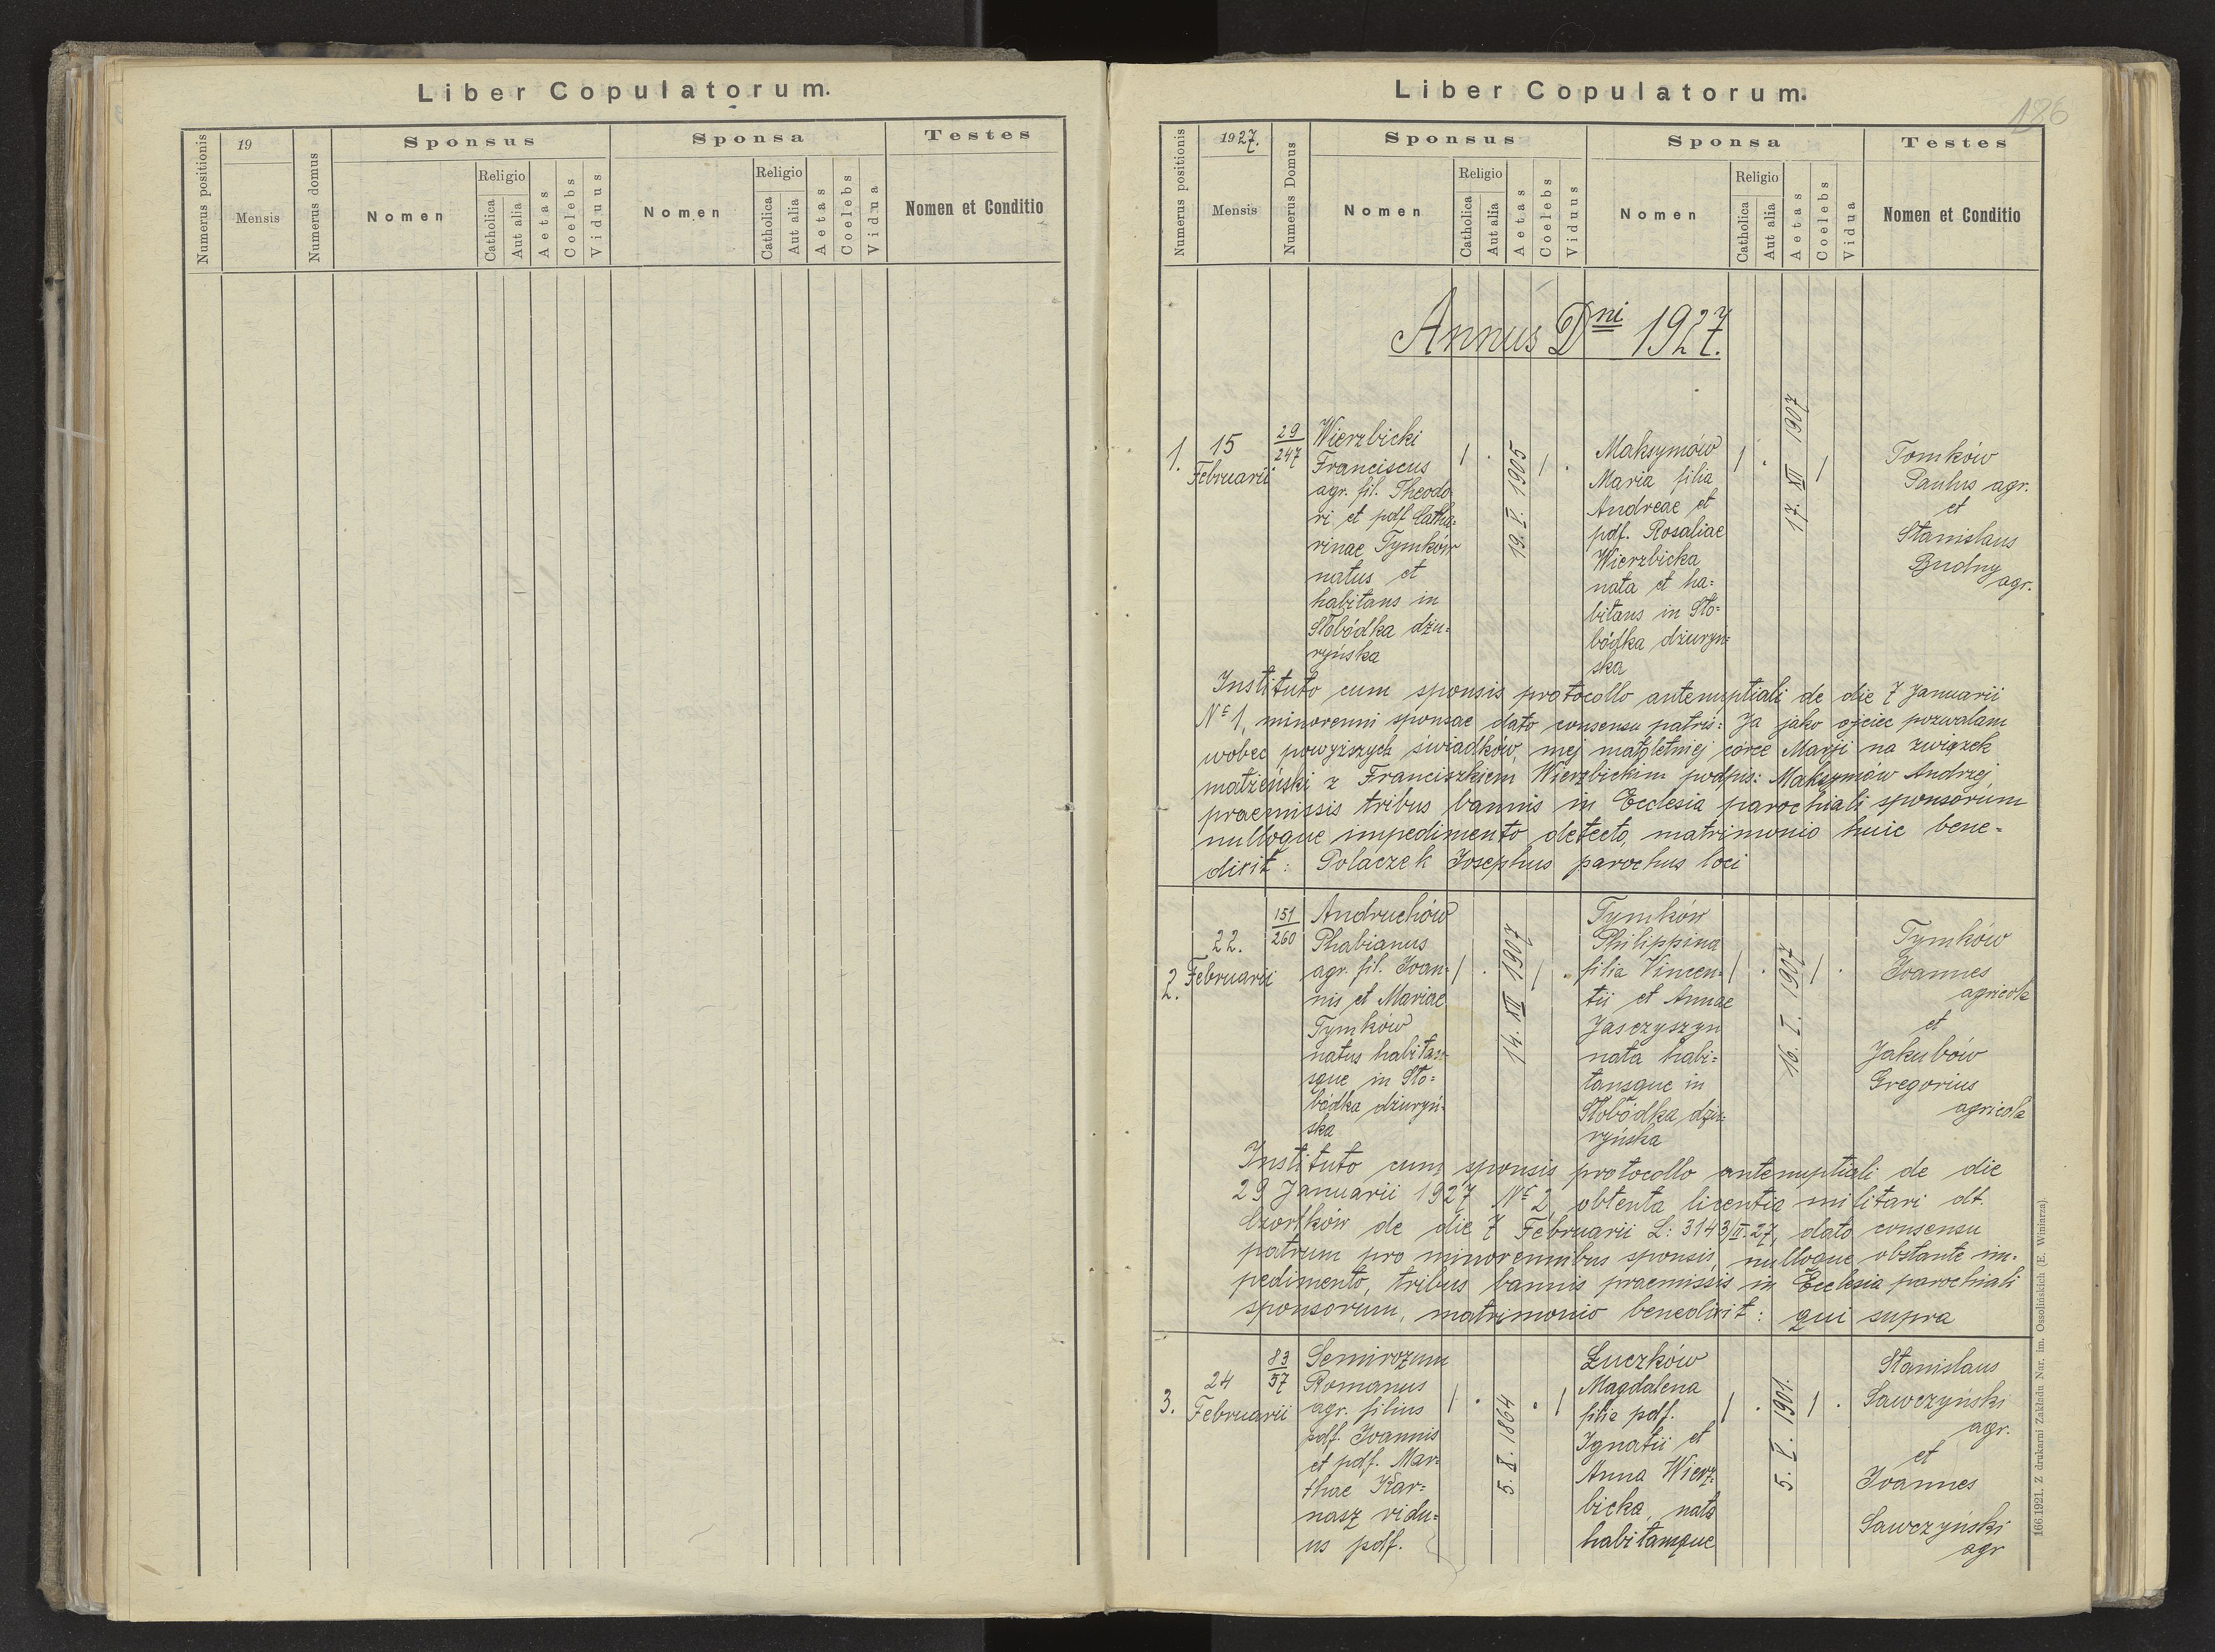 Liber Copulatorum.
Numerus positionis
19
Mensis
Numerus domus
Sponsus
Nomen
Religio
Catholica
Aut alia
Aetas
Coelebs
Viduus
Sponsa
Nomen
Religio
Catholica
Aut alia
Aetas
Coelebs
Vidua
Testes
Nomen et Conditio
Liber Copulatorum.
186
Numerus positionis
1927.
Mensis
Numerus Domus
Sponsus
Nomen
Religio
Catholica
Aut alia
Aetas
Coelebs
Viduus
Sponsa
Nomen
Religio
Catholica
Aut alia
Aetas
Coelebs
Vidua
Testes
Nomen et Conditio
Annus Dni 1927.
1.
15
Februarii
29
247
Wierzbicki
Franciscus
agr. fil. Theodo
ri et pdf Catha=
rinae Tymków
natus et
habitans in
Słobódka dżu=
ryńska
19. V. 1905
Maksymów
Maria filia
Andreae et
pdf. Rosaliae
Wierzbicka
nata et ha=
bitans in Sło=
bódka dżuryń=
ska
17. XII 1907
Tomków
Paulus agr.
et
Stanislaus
Budny
agr.
Instituto cum sponsis protocollo antenuptiali de die 7 Januarii
No 1, minorenni sponsae dato consensu patris: Ja jako ojciec pozwalam
wobec powyższych świadków, mej małoletniej córce Marji na związek
małżeński z Franciszkiem Wierzbickim podpis: Maksymów Andrzej
praemissis tribus bannis in Ecclesia parochiali sponsorum
nulloque impedimento detecto, matrimonio huic bene=
dixit: Polaczek Josephus parochus loci
2.
22.
Februarii
151
260
Andruchów
Phabianus
agr. fil. Joan=
nis et Mariae
Tymków
natus habitan=
sque in Sło=
bódka dżuryń=
ska
14. XII 1907
Tymków
Philippina
filia Vincen=
tii et Annae
Jasczyszyn
nata habi=
tansque in
Słobódka dżu=
ryńska
16. I. 1907
Tymków
Joannes
agricola
et
Jakubów
Gregorius
agricola
Instituto cum sponsis protocollo antenuptiali de die
29 Januarii 1927 No 2, obtenta licentia militari dt.
Czortków de die 7 Februarii L: 3143/II.27, dato consensu
patrum pro minorennibus sponsis, nulloque obstante im=
pedimento, tribus bannis praemissis in Ecclesia parochiali
sponsorum, matrimonio benedixit: qui supra
3.
24
Februarii
83
57
Semirozum
Romanus
agr. filius
pdf. Joannis
et pdf. Mar=
thae Kar=
nasz vidu=
us pdf.
5. X. 1864
Łuczków
Magdalena
filia pdf.
Ignatii et
Anna Wierz=
bicka, nata
habitansque
5. V. 1901.
Stanislaus
Sawczyński
agr.
et
Joannes
Sawczyński
agr
166.1921. Z drukarni Zakładu Nar. im. Ossolińskich (E. Winiarza).